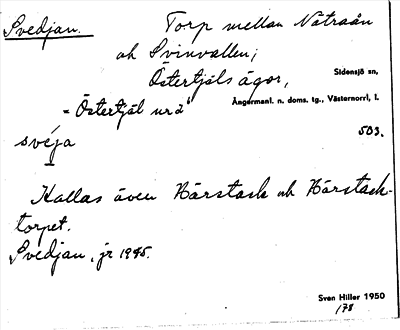 Svedjan. Torp mellan Nätraån
och Svinvallen;
Östertjäls ägor, Sidensjö sn,
"Östertjäl nr 2" Ångermanl. n. doms. tg., Västernorrl, l.
svéja 503.
Kallas även Härstack och Härstack-
torpet.
Svedjan, jr 1945.
Sven Hiller 1950
178